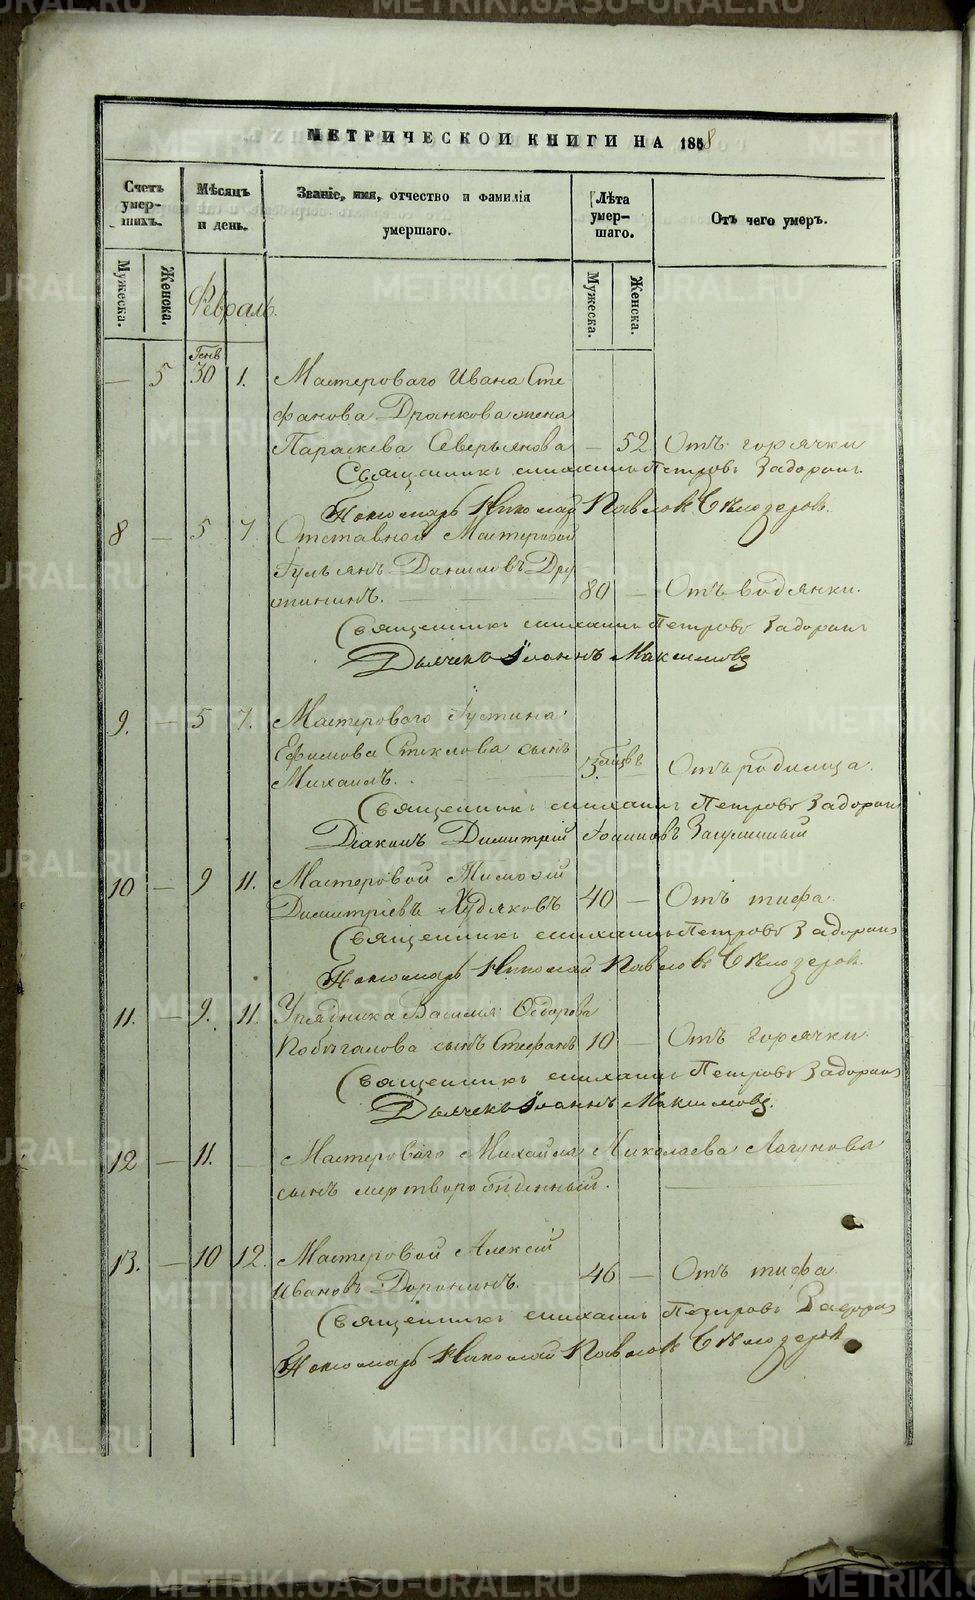 МЕТРИЧЕСКОЙ КНИГИ НА 1858
Счетъ умер- шихъ.
Мѣсяцъ и день.
Званіе, имя, отчество и фамилія умершаго.
Лѣта умер- шаго.
Отъ чего умеръ.
Мужеска.
Женска.
Мужеска.
Женска.
Февраль.
Генв
— 5 30 1. Мастероваго Ивана Сте
фанова Дранкова жена
Параскева Северьянова — 52 Отъ горячки
Священникъ Михаилъ Петровъ Задоринъ
Пономарь Николай Павловъ Бѣлозеровъ.
8 — 5 7. Отставной Мастеровой
Гульянъ Даниловъ Дру
жининъ. 80 — Отъ водянки.
Священникъ Михаилъ Петровъ Задоринъ
Дьячекъ Іоаннъ Максимовъ
9. — 5 7. Мастероваго Густина
Ефимова Стеклова сынъ
Михаилъ. 3. Отъ родимца.
Священникъ Михаилъ Петровъ Задоринъ
Діаконъ Димитрій Іоанновъ
10 — 9 11. Мастеровой Тимофій
Димитріевъ Худяковъ 40 — Отъ тифа.
Священникъ Михаилъ Петровъ Задоринъ
Пономарь Николай Павловъ Бѣлозеровъ.
11. — 9. 11. Урядника Василія Ѳедорова
сынъ Стефанъ 10 — Отъ горячки.
Священникъ Михаилъ Петровъ Задоринъ
Дьячекъ Іоаннъ Максимовъ.
12 — 11. — Мастероваго Михаила Николаева Лагунова
сынъ мертворожденный.
13. — 10 12. Мастеровой Алексій
Ивановъ Доронинъ. 46 — Отъ тифа.
Священникъ Михаилъ Петровъ Задоринъ
Пономарь Николай Павловъ Бѣлозеровъ
METRIKI.GASO-URAL.RU